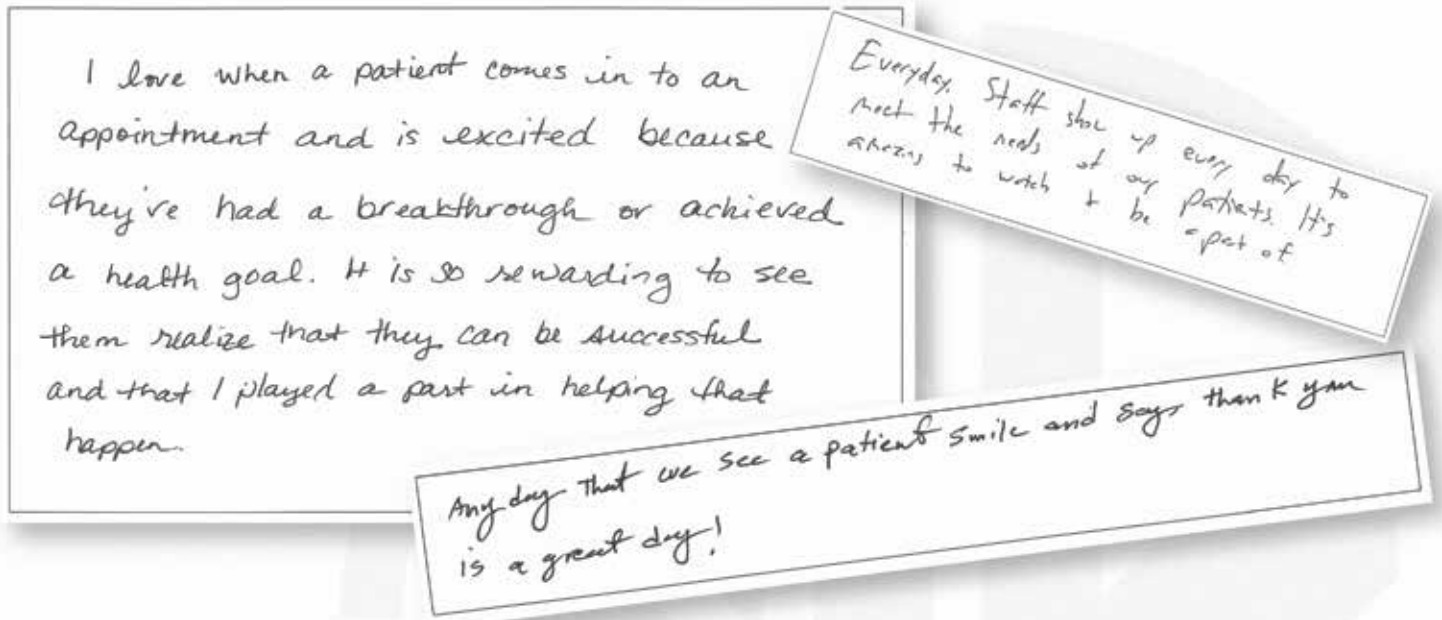 I love when a patient comes in to an
appointment and is excited because
they've had a breakthrough or achieved
a health goal. It is so rewarding to see
them realize that they can be successful
and that I played a part in helping that
happen.
Everyday. Staff show up every day to
meet the needs of our patients. It's
amazing to watch + be a part of
Any day that we see a patient smile and says thank you
is a great day!